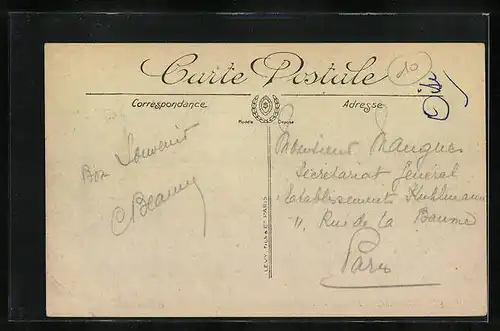 Carte Postale
10
Oise
Correspondance
Adresse
Modèle Déposé
Bon Souvenir
LEVY, FILS & Cie PARIS
Monsieur Mangues
Secrétariat Général
Etablissements Kuhlmann
11, Rue de la Baume
Paris